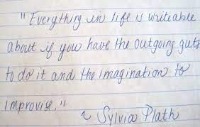 "Everything in life is writable
about if you have the outgoing guts
to do it and the imagination to
improvise."
~ Sylvia Plath